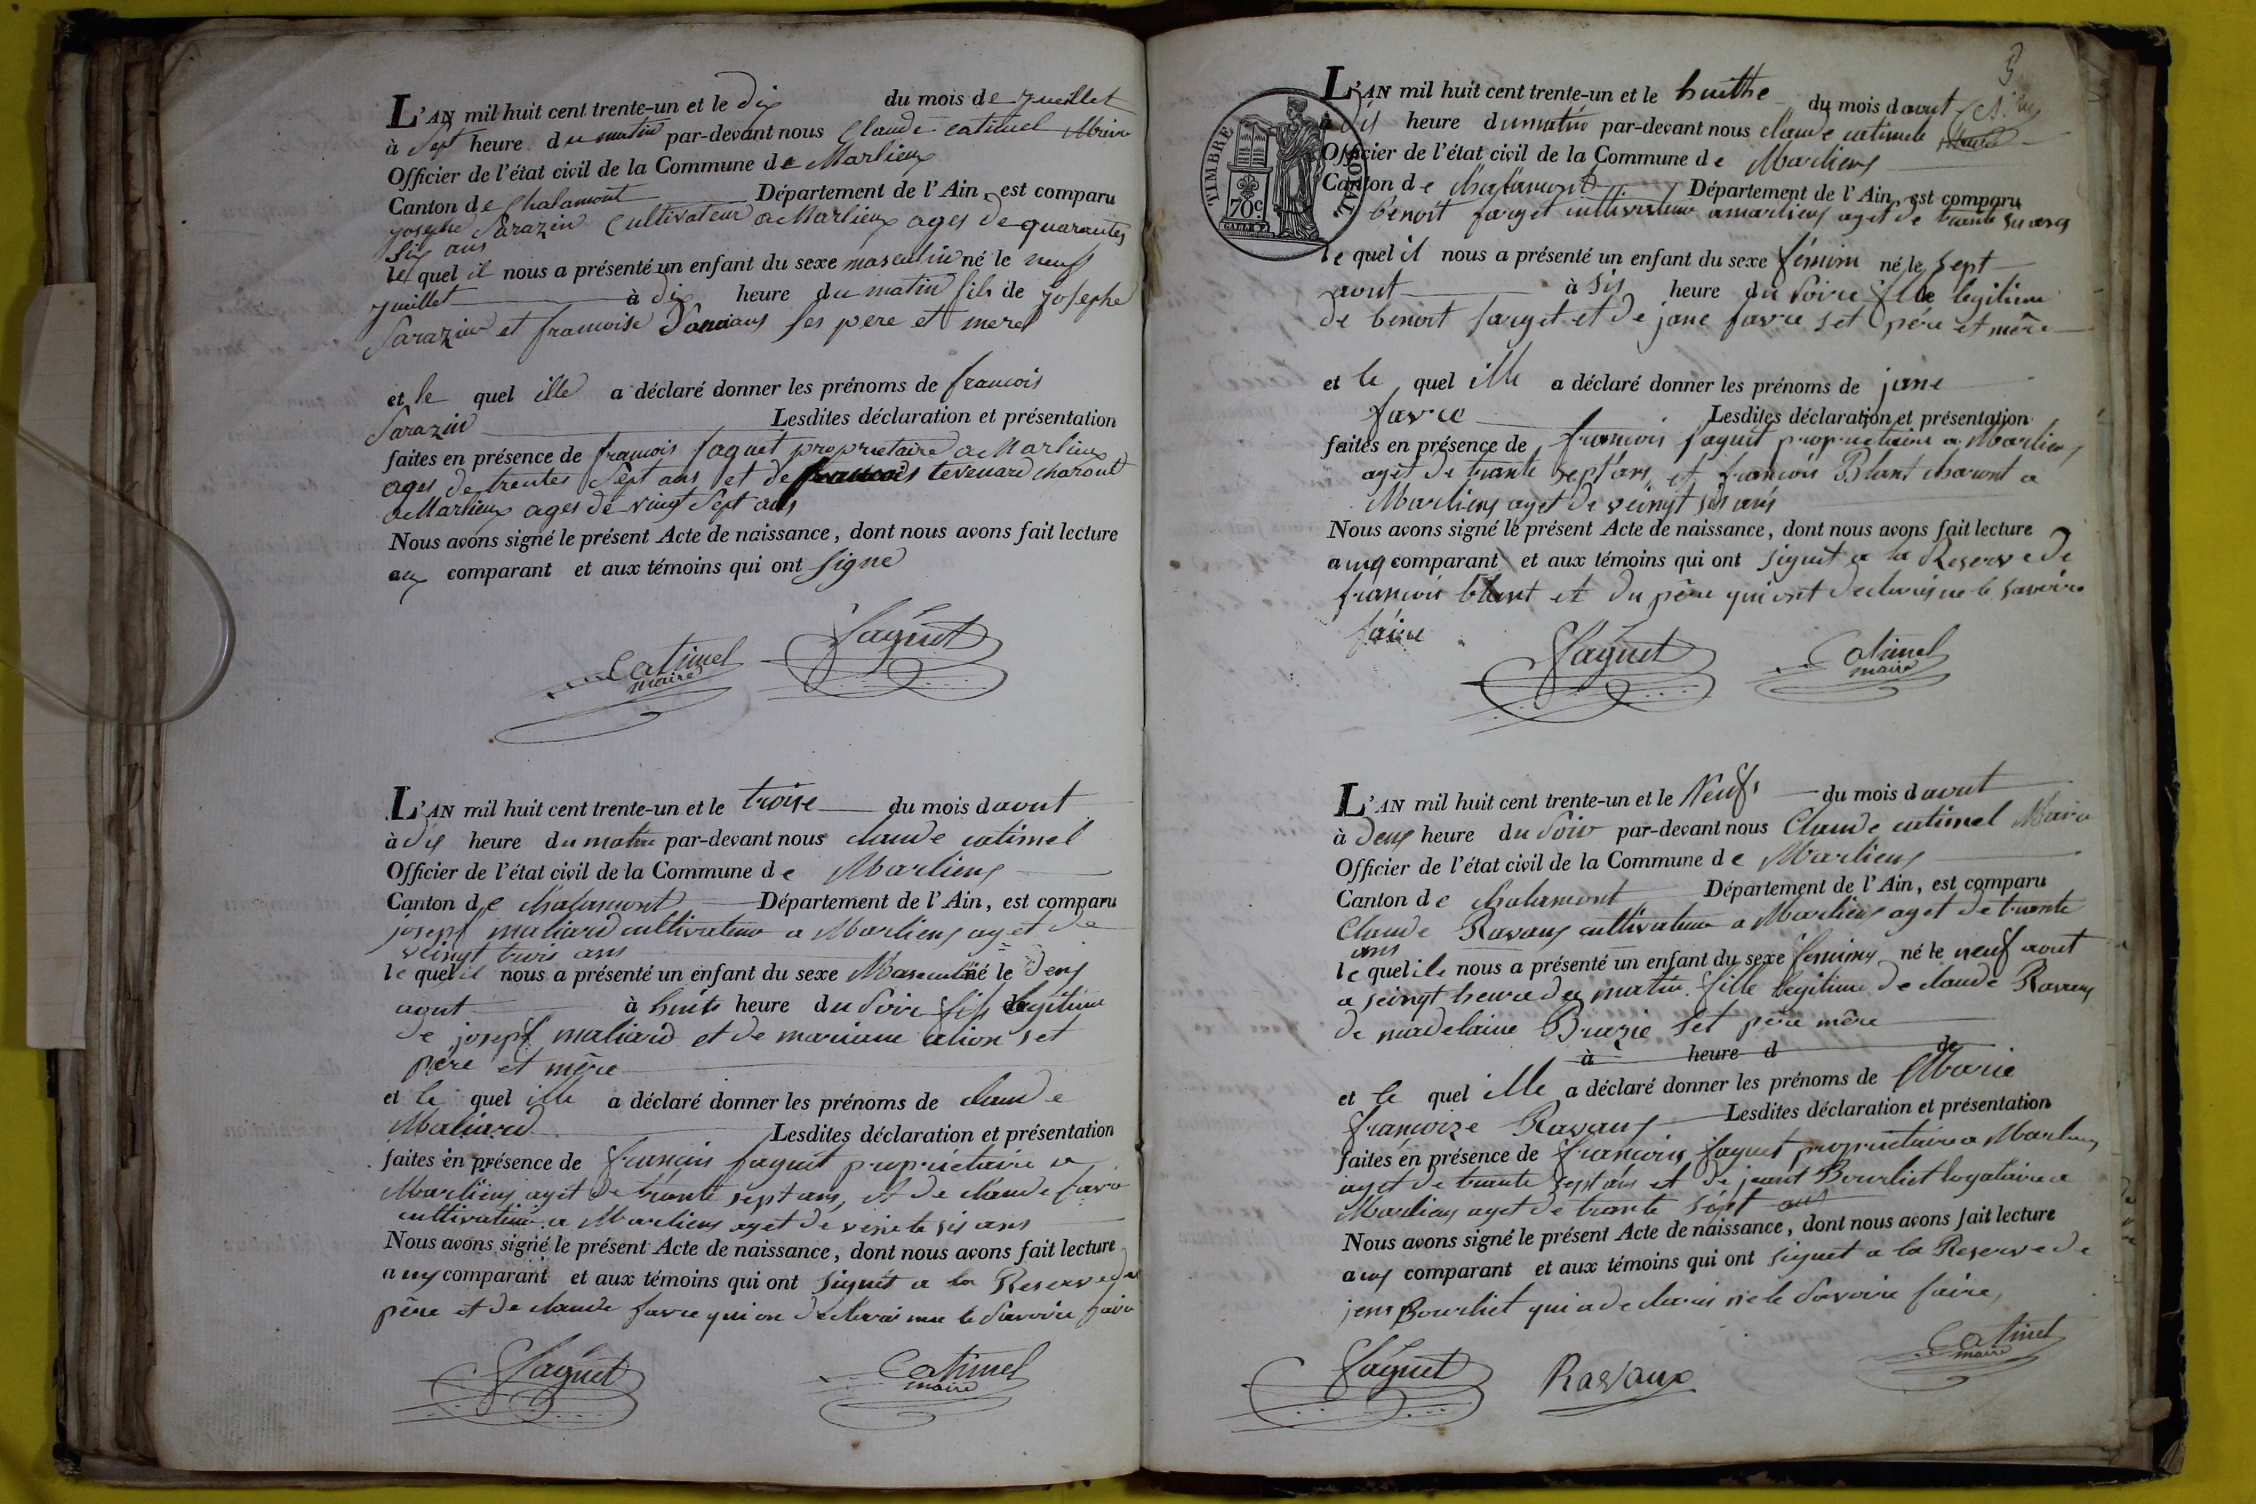 L'AN mil huit cent trente-un et le dix du mois de Jueillet
à Sept heure du matin par-devant nous Claude catimel Maire
Officier de l'état civil de la Commune de Marlieux
Canton de Chalamont Département de l'Ain, est comparu
josephe Sarazin Cultivateur a Marlieux ages de quarantes
Six ans
le quel il nous a présenté un enfant du sexe masculin né le neuf
Jueillet à dix heure du matin fils de josephe
Sarazin et francoise ses pere et mere
et le quel ille a déclaré donner les prénoms de francois
Sarazin Lesdites déclaration et présentation
faites en présence de francois faguet proprietaire a Marlieux
ages de trentes Sept ans et de francois tevenard charont
a Marlieux ages de vingt Sept ans
Nous avons signé le présent Acte de naissance, dont nous avons fait lecture
aux comparant et aux témoins qui ont signe
Faguet
Catimel
maire
L'AN mil huit cent trente-un et le troise du mois d aout
à dis heure du matin par-devant nous claude catimel
Officier de l'état civil de la Commune de Marlieux
Canton de chalamont Département de l'Ain, est comparu
josepf maliard cultivateur a Marlieux aget de
veingt trois ans
le quel il nous a présenté un enfant du sexe Masculin né le deux
aout à huit heure du soire fils legitime
de josepf maliard et de mariane alion set
père et mère
et le quel ille a déclaré donner les prénoms de claude
Maliard Lesdites déclaration et présentation
faites en présence de françois faguet propriétaire a
Marlieux aget de trante sept ans, et de claude favre
cultivateur a Marlieux aget de veinte sis ans
Nous avons signé le présent Acte de naissance, dont nous avons fait lecture
aux comparant et aux témoins qui ont signet a la Reserve du
père et de claude favre qui on declarai ne le savoire faire
Faguet
Catimel
maire
3
L'AN mil huit cent trente-un et le huithe du mois d aout
à dis heure du matin par-devant nous claude catimele
Officier de l'état civil de la Commune de Marlieux
Canton de chalamont Département de l'Ain, est comparu
benoit farget cultivateur a marlieux aget de trante
TIMBRE ROYAL
70c
le quel il nous a présenté un enfant du sexe féminin né le sept
aout à sis heure du soire fille legitime
de benoit farget et de jane favre set père et mère
et le quel ille a déclaré donner les prénoms de jane
favre Lesdites déclaration et présentation
faites en présence de francois faguet propriétaire a Marlieux
aget de trante sept ans, et francois Blant charont a
Marlieux aget de veingt sis ans
Nous avons signé le présent Acte de naissance, dont nous avons fait lecture
aux comparant et aux témoins qui ont signet a la Reserve de
francois blant et du père qui ont declaris ne le savoire
faire
Faguet
Catimel
maire
L'AN mil huit cent trente-un et le Neuf du mois d aout
à deux heure du Soir par-devant nous Claude catimel Maire
Officier de l'état civil de la Commune de Marlieux
Canton de chalamont Département de l'Ain, est comparu
Claude Ravaux cultivateur a Marlieux aget de trante
ans
le quel ile nous a présenté un enfant du sexe feminin né le neuf aout
a heure du matin fille legitime de claude Ravaux
de madelaine Brazie set père mère
à heure d de
et le quel ille a déclaré donner les prénoms de Marie
françoize Ravaux Lesdites déclaration et présentation
faites en présence de francois faguet propriétaire a Marlieux
aget de trante sept ans et de jeant Bourliet logataire a
Marlieux aget de trante sept ans
Nous avons signé le présent Acte de naissance, dont nous avons fait lecture
aux comparant et aux témoins qui ont signet a la Reserve de
jean Bourliet qui a declarais ne le Savoire faire,
Catimel
maire
Faguet
Ravaux